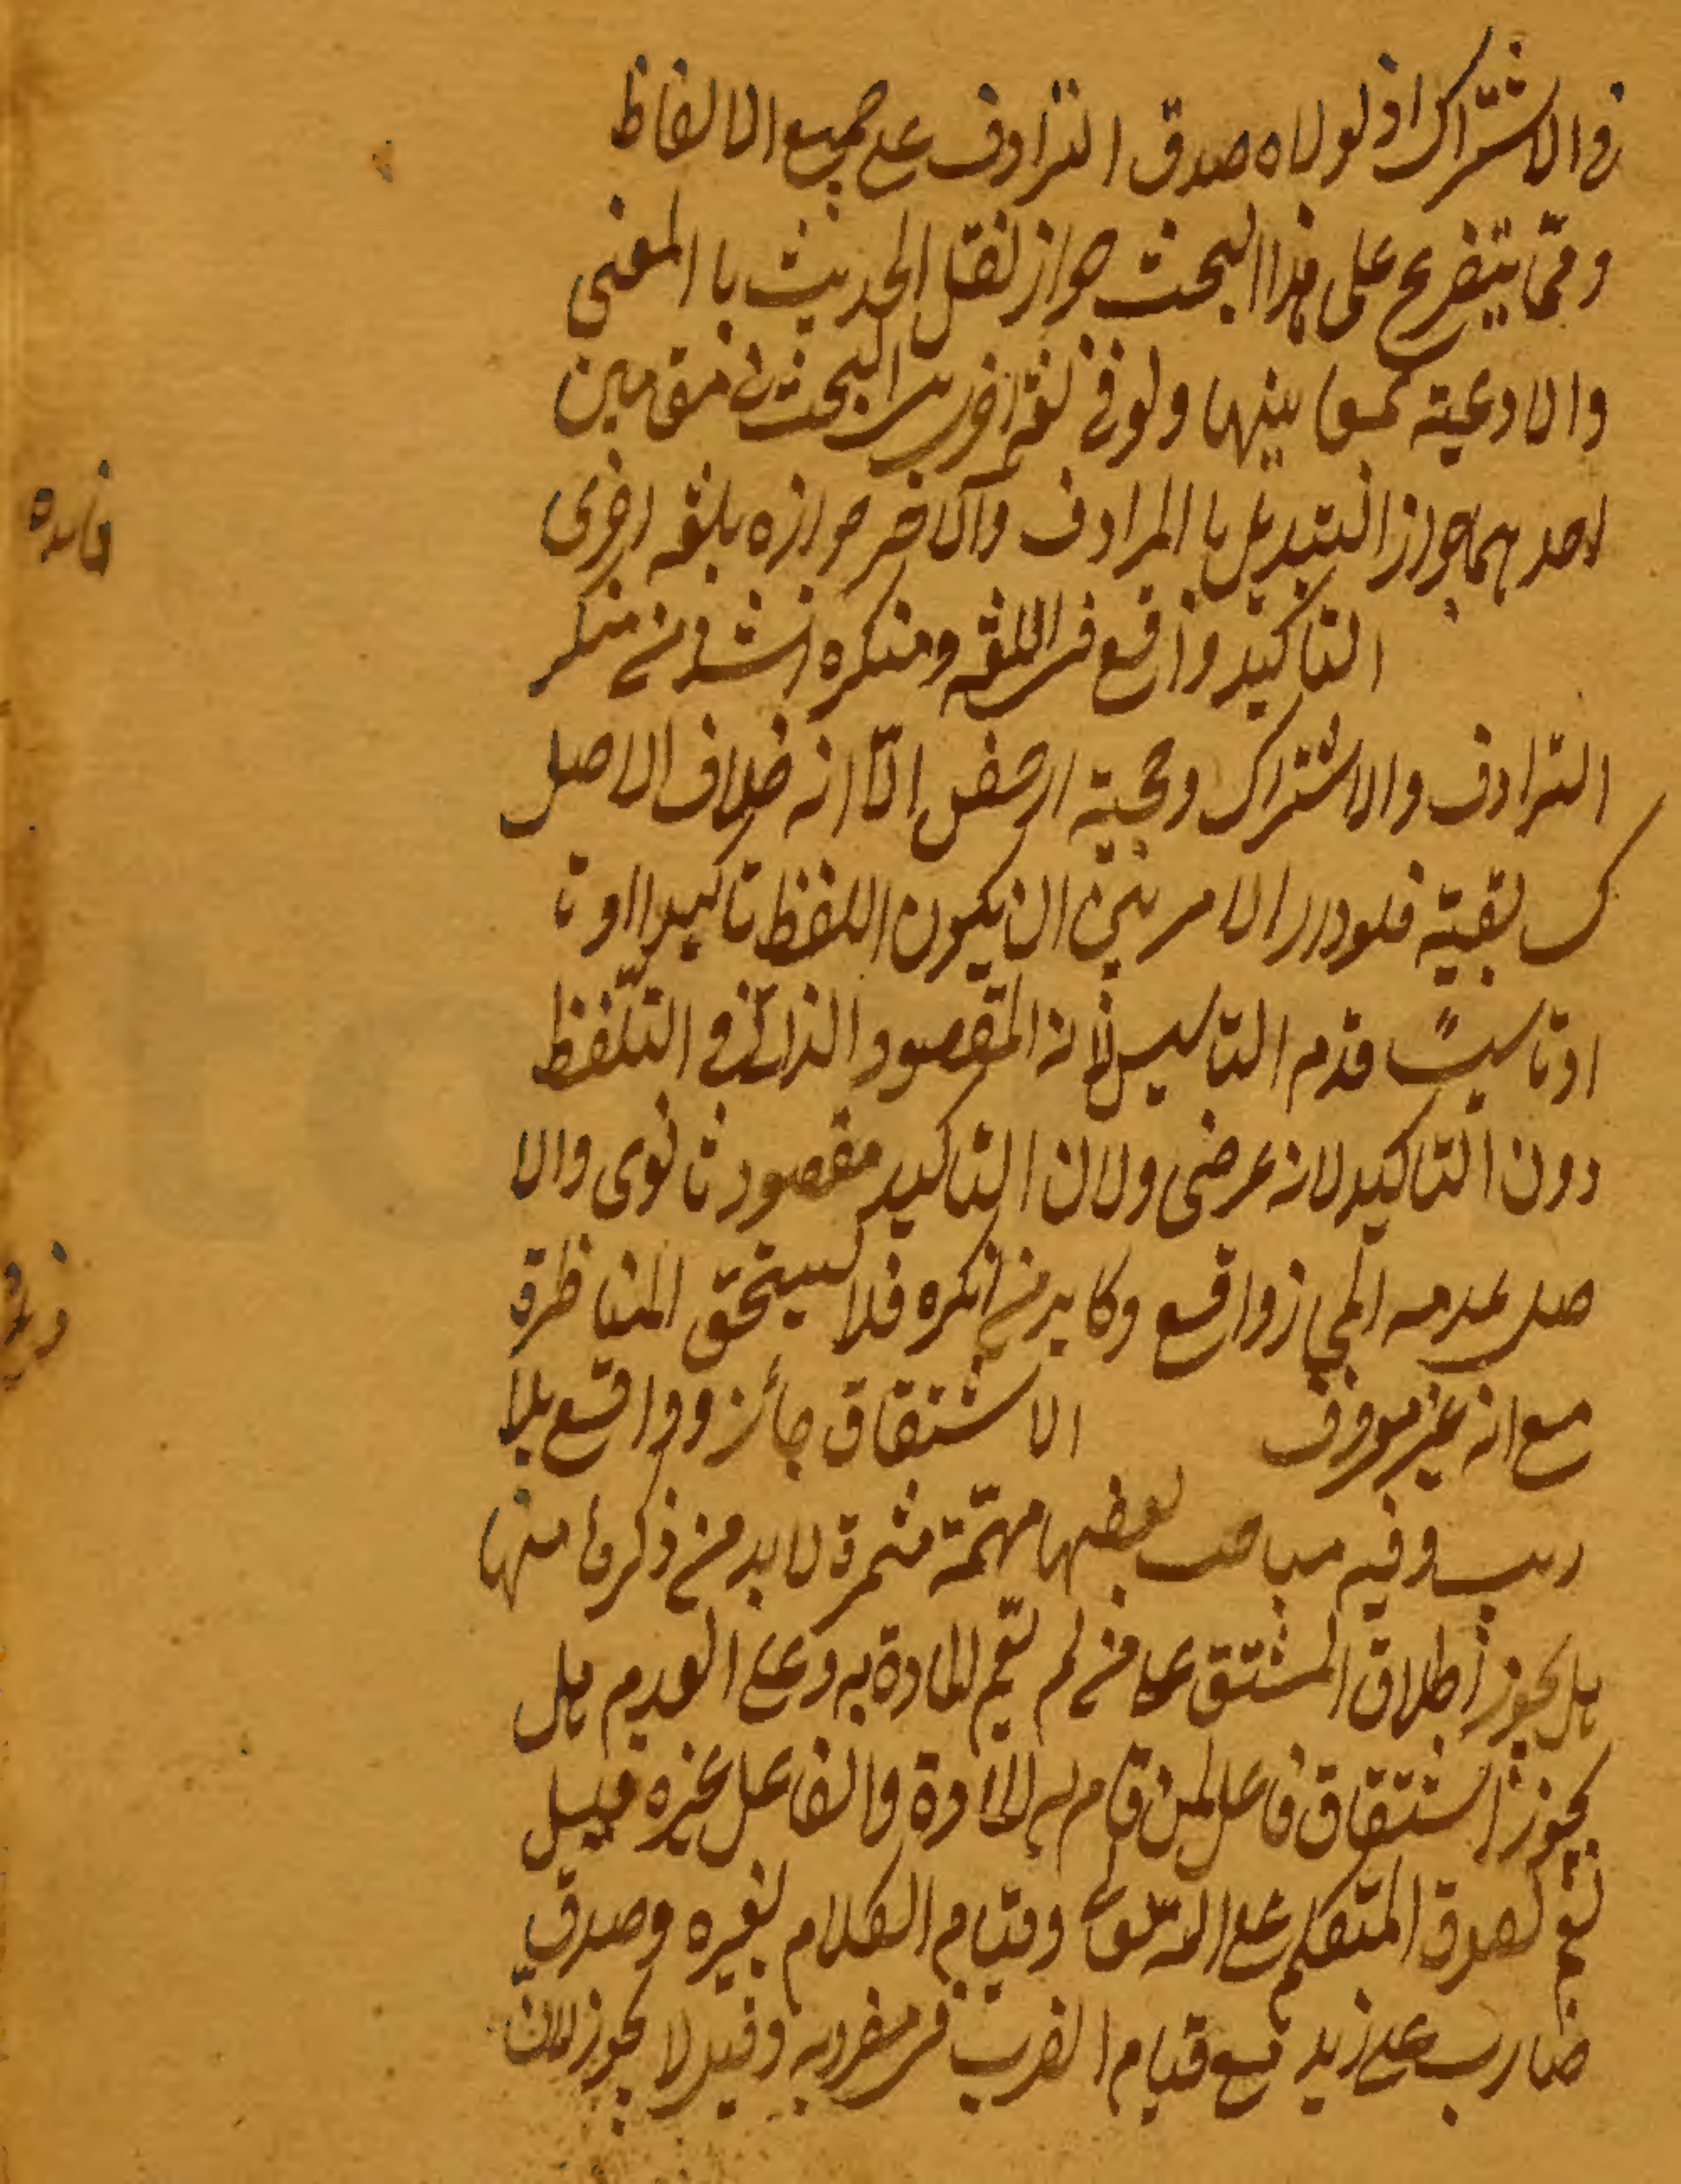 في الاشتراك اذ لولاه صدق الترادف على جميع الالفاظ
وممّا يتفرع على هذا البحث جواز نقل الحديث با المعنى
والادعية بينها ولو في لغة اخرى البحث في مقامين
احدهما جواز التبديل با المرادف والاخر جوازه بلغه اخرى
فايده
التاكيد واقع في اللغه ومنكره اشد من منكر
الترادف والاشتراك وحجية الّا انه خلاف الاصل
كسابقيه فلو دار الامر بين ان يكون اللفظ تاكيدا او تا
او تاسيسًا قدم التاسيس لانه المقصود الذاتي في التلّفظ
دون التاكيد لانه عرضى ولان التاكيد مقصود ثانوى والا
صل عدمه المجاز واقع وكابر من انكره فلا يستحق المناظرة
مع انه غير معروف الاشتقاق جائز وواقع بلا
ريب وفيه مباحث بعضها مهمّة مثمرة لا بد من ذكرها منها
هل يجوز اطلاق المشتق على من لم تقم المادة به وعلى العدم هل
يجوز اشتقاق فاعل لمن قام به المادة والفاعل غيره فقيل
نعم لصدق المتكلم على الله تعالى وقيام الكلام لغيره وصدق
ضارب على زيد مع قيام الضرب في مضروبه وقيل لا يجوز للان